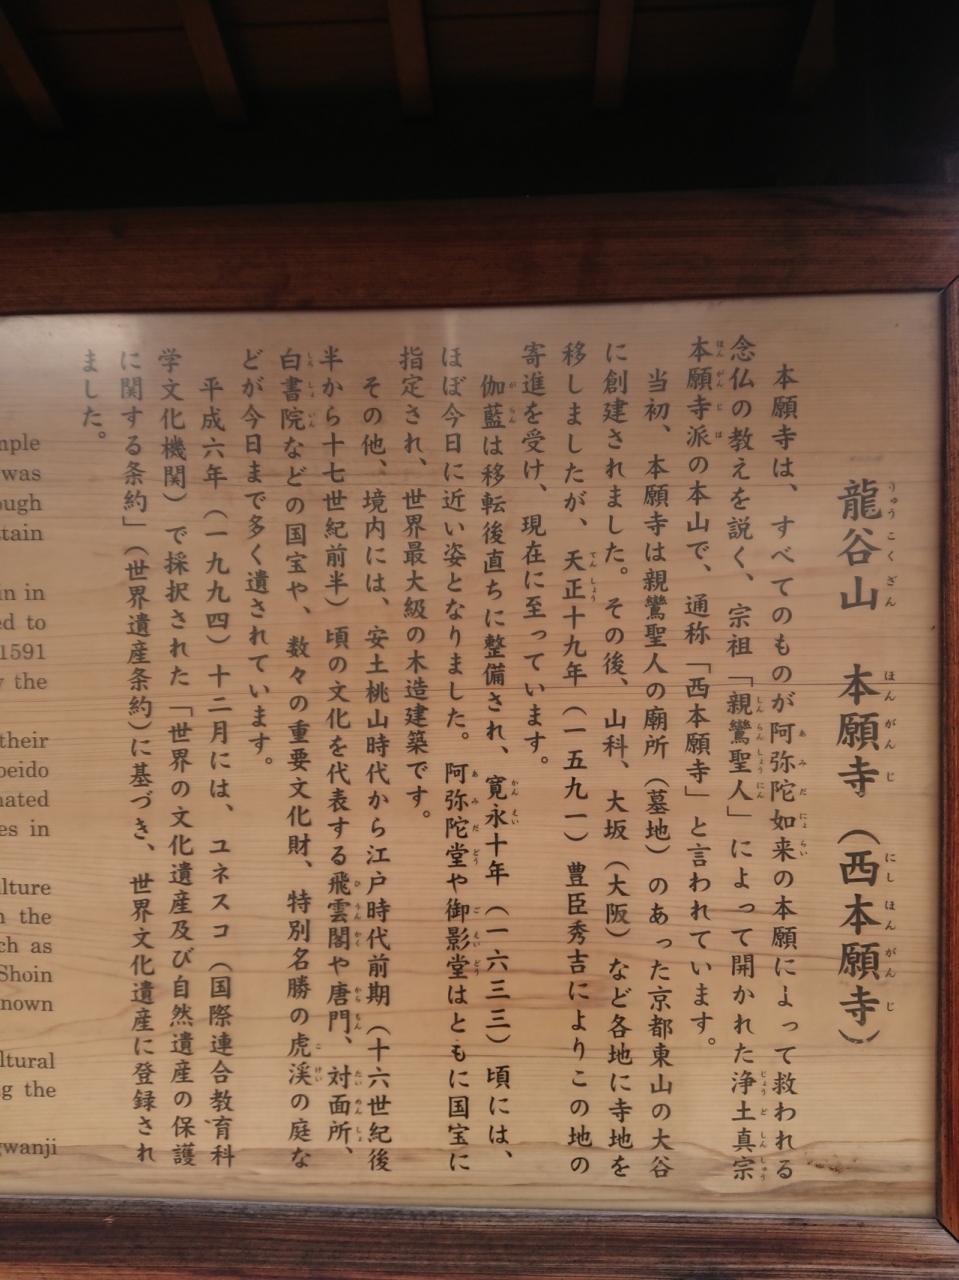 龍谷山 本願寺（西本願寺）
本願寺は、すべてのものが阿弥陀如来の本願によって救われる
念仏の教えを説く、宗祖「親鸞聖人」によって開かれた浄土真宗
本願寺派の本山で、通称「西本願寺」と言われています。
当初、本願寺は親鸞聖人の廟所（墓地）のあった京都東山の大谷
に創建されました。その後、山科、大坂（大阪）など各地に寺地を
移しましたが、天正十九年（一五九一）豊臣秀吉によりこの地の
寄進を受け、現在に至っています。
伽藍は移転後直ちに整備され、寛永十年（一六三三）頃には、
ほぼ今日に近い姿となりました。阿弥陀堂や御影堂はともに国宝に
指定され、世界最大級の木造建築です。
その他、境内には、安土桃山時代から江戸時代前期（十六世紀後
半から十七世紀前半）頃の文化を代表する飛雲閣や唐門、対面所、
白書院などの国宝や、数々の重要文化財、特別名勝の虎渓の庭な
どが今日まで多く遺されています。
平成六年（一九九四）十二月には、ユネスコ（国際連合教育科
学文化機関）で採択された「世界の文化遺産及び自然遺産の保護
に関する条約」（世界遺産条約）に基づき、世界文化遺産に登録され
ました。
mple
was
ough
tain
un in
ed to
1591
y the
their
oeido
nated
es in
lture
n the
ch as
Shoin
nown
ltural
g the
gwanji